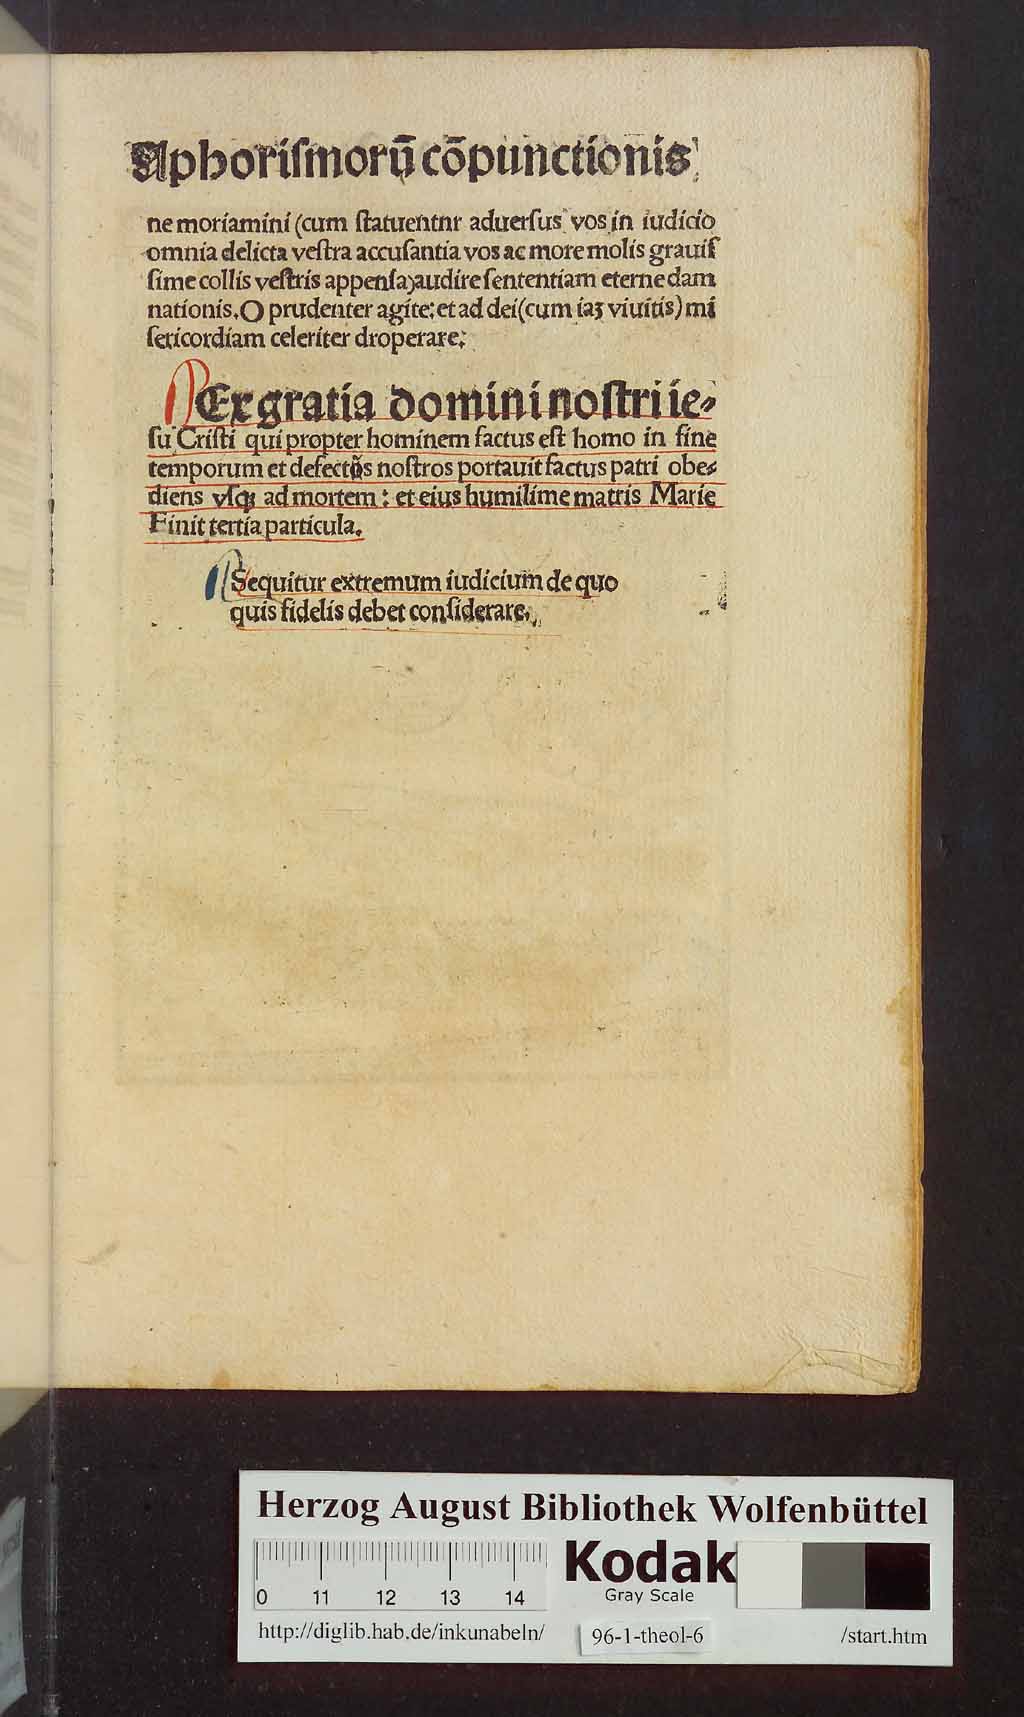 Aphoriſmorū cōpunctionis
ne moriamini (cum ſtatuentnr aduerſus vos in iudicio
omnia delicta veſtra accuſantia vos ac more molis grauiſ
ſime collis veſtris appenſa) audire ſententiam eterne dam
nationis. O prudenter agite: et ad dei (cum iaꝫ viuitis) mi
ſericordiam celeriter droperare:
Ex gratia domini noſtri ie⸗
ſu Criſti qui propter hominem factus eſt homo in fine
temporum et defectōs noſtros portauit factus patri obe⸗
diens vſqꝫ ad mortem: et eius humilime matris Marie
Finit tertia particula.
Sequitur extremum iudicium de quo
quis fidelis debet conſiderare.
Herzog August Bibliothek Wolfenbüttel
0 11 12 13 14
Kodak
Gray Scale
http://diglib.hab.de/inkunabeln/ 96-1-theol-6 /start.htm